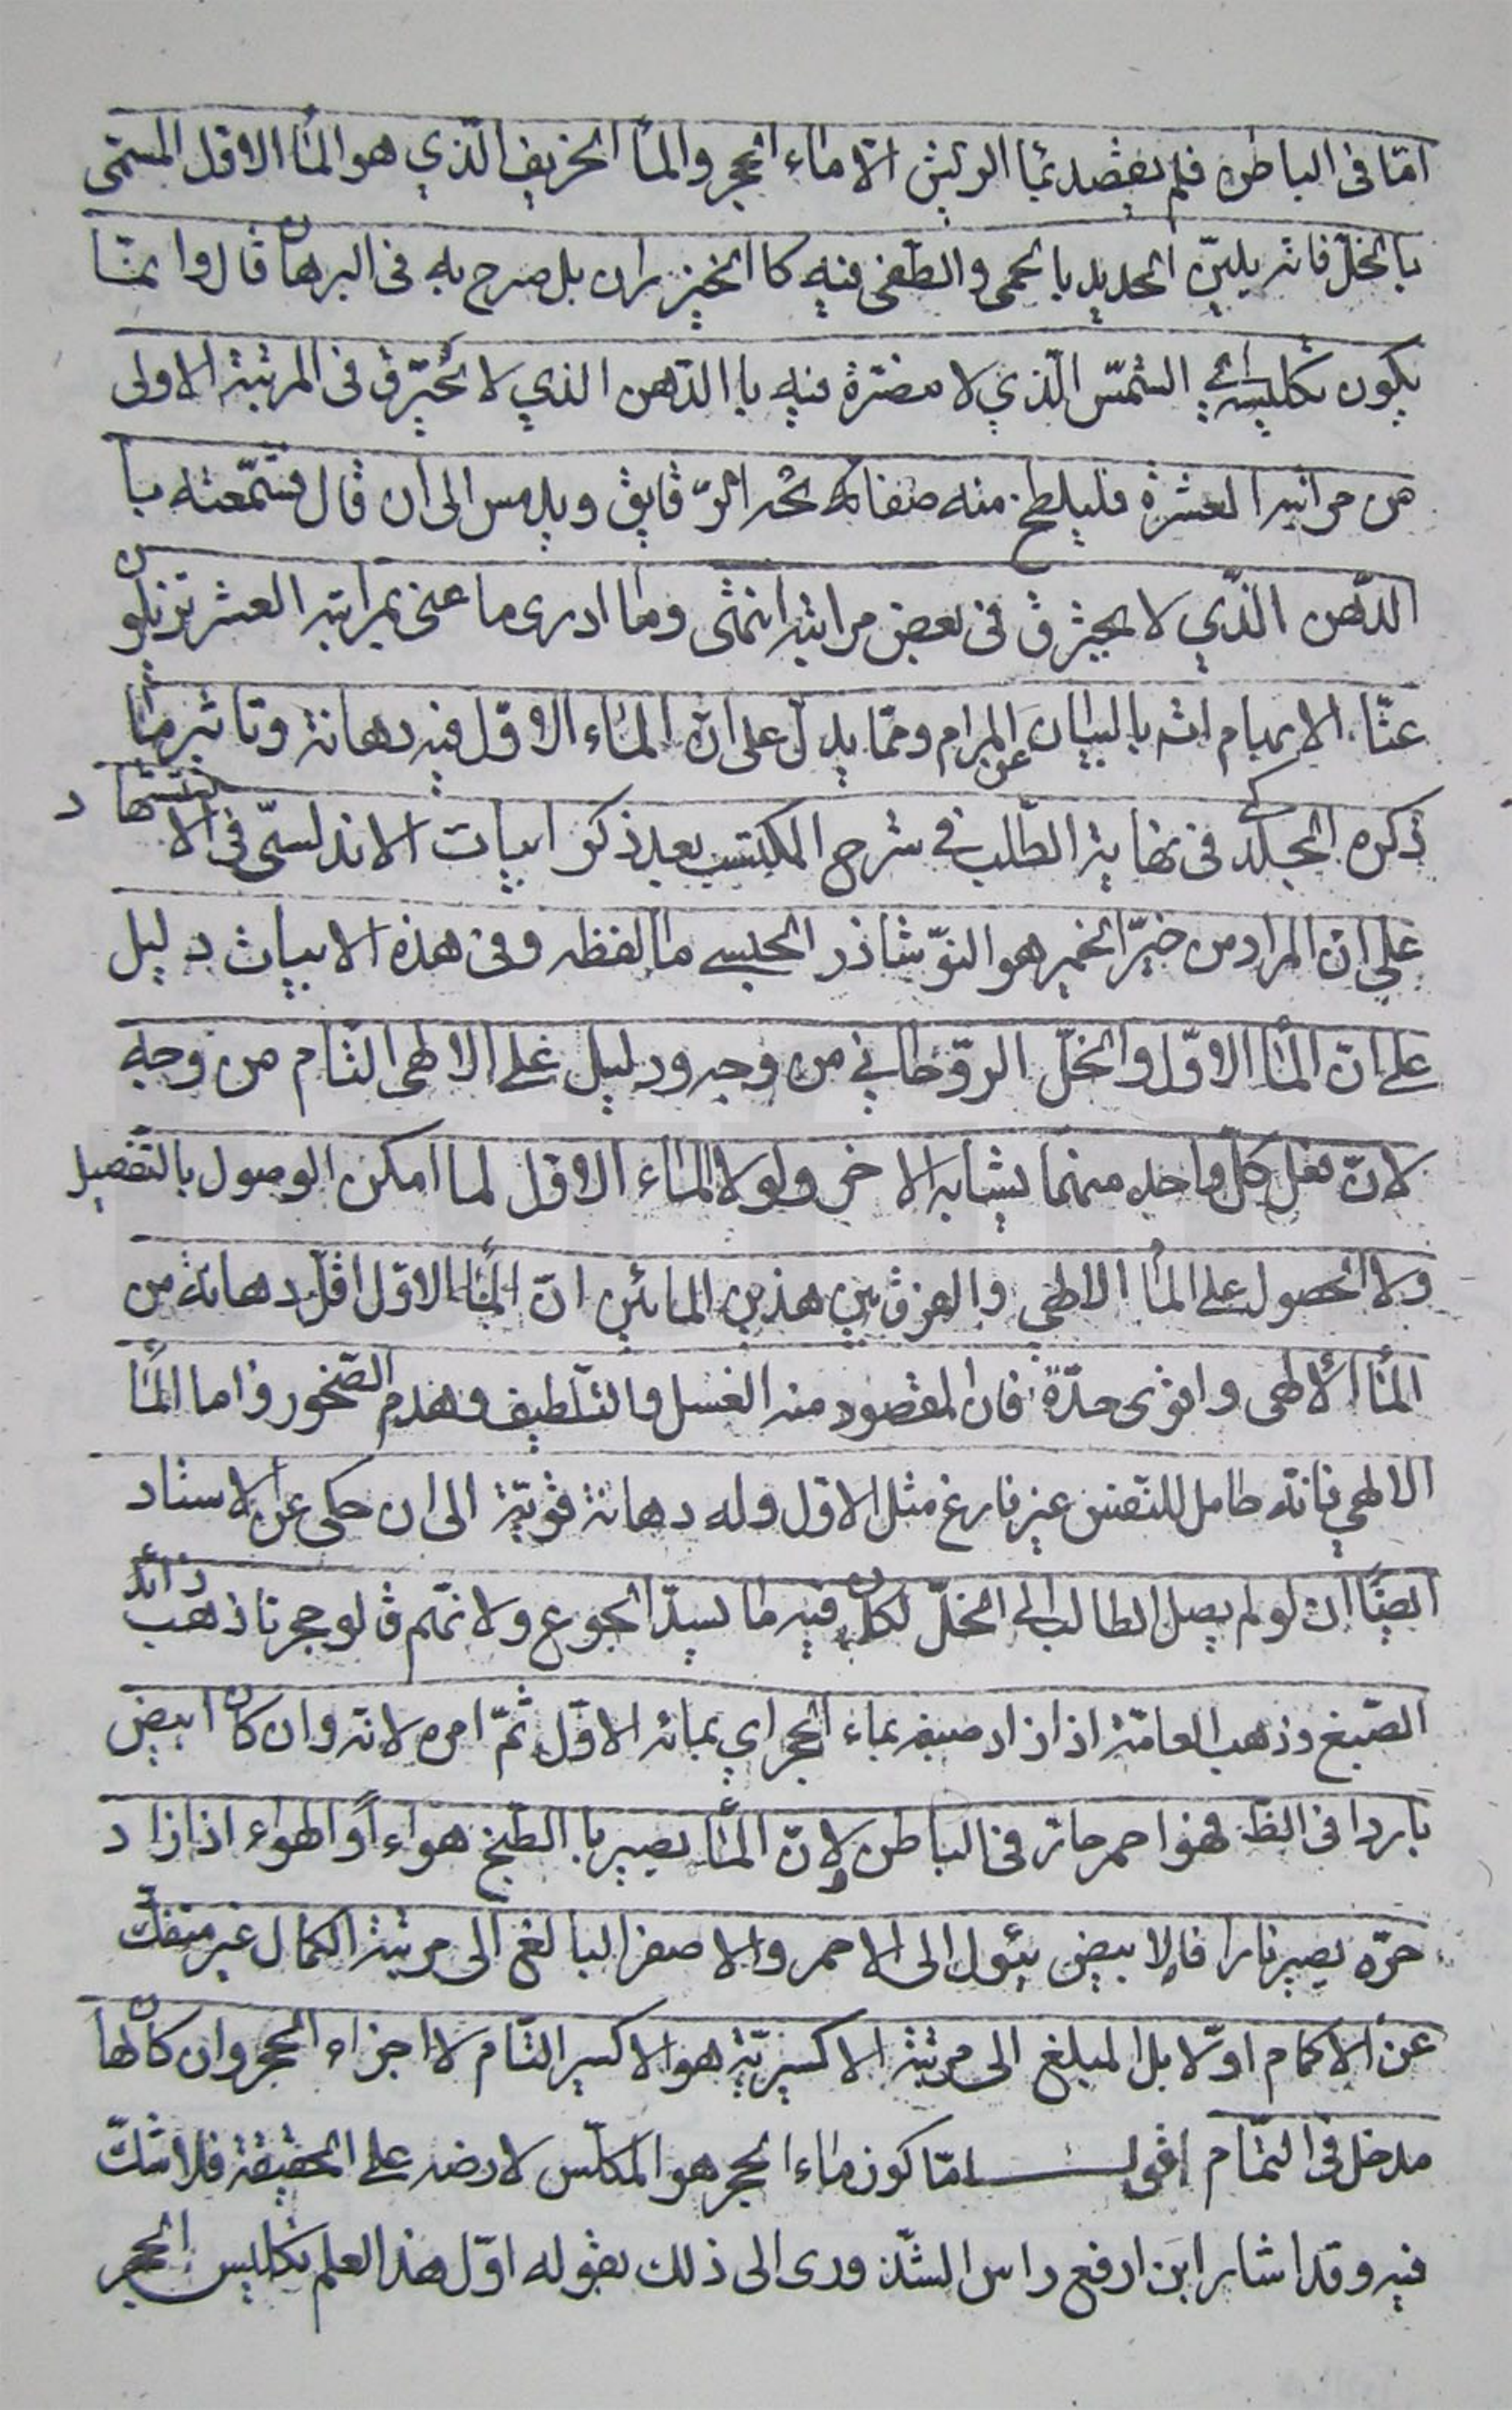 امّا فى الباطن فلم يقصد بماء الرئيس الّا ماء الحجر والماء الحريف الّذي هو الماء الاوّل المسمّى
بالخلّ فانه يليّن الحديد بالحمى والطفى فيه كا الخيزران بل صرح به فى البرهان قال وانمّا
يكون تكليسه اي الشمس الّذي لا مضرة فيه باالدّهن الذي لا يحترق فى المرتبة الاولى
من مراتبه العشرة فليلطخ منه صفائحه الرّقايق ويدمس الى ان قال فشمّعته با
الدّهن الّذي لا يحترق فى بعض مراتبه انتهى وما ادرى ما عنى بمراتبه العشر
عنّا الابهام انه بالبيان عن المرام وممّا يدل على انّ الماء الاوّل فيه دهانة وتاثير ما
ذكره الجلدكى فى نهاية الطّلب فى شرح المكتسب بعد ذكر ابيات الاندلسىّ فى الاستشهاد
على ان المراد من خير الخمير هو النوّشاذر الحبسى ما لفظه وفى هذه الابيات دليل
على انّ الماء الاوّل والخلّ الروّحانى من وجه ودليل على الالهى التام من وجه
لانّ فعل كلّ واحد منهما يشابه الاخر ولولا الماء الاوّل لما امكن الوصول بالتفصيل
ولا الحصول على الماء الالهي والفرق بين هذين المائين انّ الماء الاوّل اقلّ دهانة من
الماء الالهى واقوى حدّة فان المقصود منه الغسل والتلطيف وهدم الصّخور واما الماء
الالهي فانّه حامل للنفس غير فارغ مثل الاوّل وله دهانة قويّة الى ان حكى عن الاستاد
ايضًا ان لو لم يصل الطالب الى الخلّ لكان فيه ما يسدّ الجوع ولا تمّم قالو حجرنا ذهب زائد
الصّبغ وذهب العامّة اذا زاد صبغه بماء الحجر اي بمائه الاوّل ثمّ امره لانّه وان كان ابيض
باردا فى الظ فهو احمر حار فى الباطن لانّ الماء يصير باالطّبخ هواءاً والهواء اذا زاد
حرّه يصير نارا فالابيض يئول الى الاحمر والاصفر البالغ الى مرتبة الكمال غير منفكّ
عن الاكمام اوّلا بل المبلغ الى مرتبة الاكسيريّة هو الاكسير التام لا اجزاء الحجر وان كان لها
مدخل فى التمّام اقول امّا كون ماء الحجر هو المكلّس لارضه على الحقيقة فلا شكّ
فيه وقد اشار ابن ارفع راس الشذورى الى ذلك بقوله اوّل هذا العلم تكليس الحجر